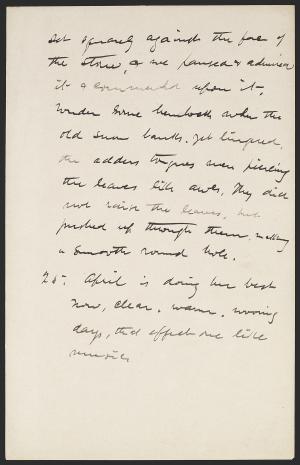 set squarely against the face of
the stone, & we paused & admired
it & commented upon it.
Under some hemlocks where the
old snow banks yet lingered,
the adders tongues were piercing
the leaves like awls. They did
not raise the leaves, but
pushed up through them, making
a smooth round hole.
25. April is doing her best
now, clear, warm, wooing
days, that affect one like
music